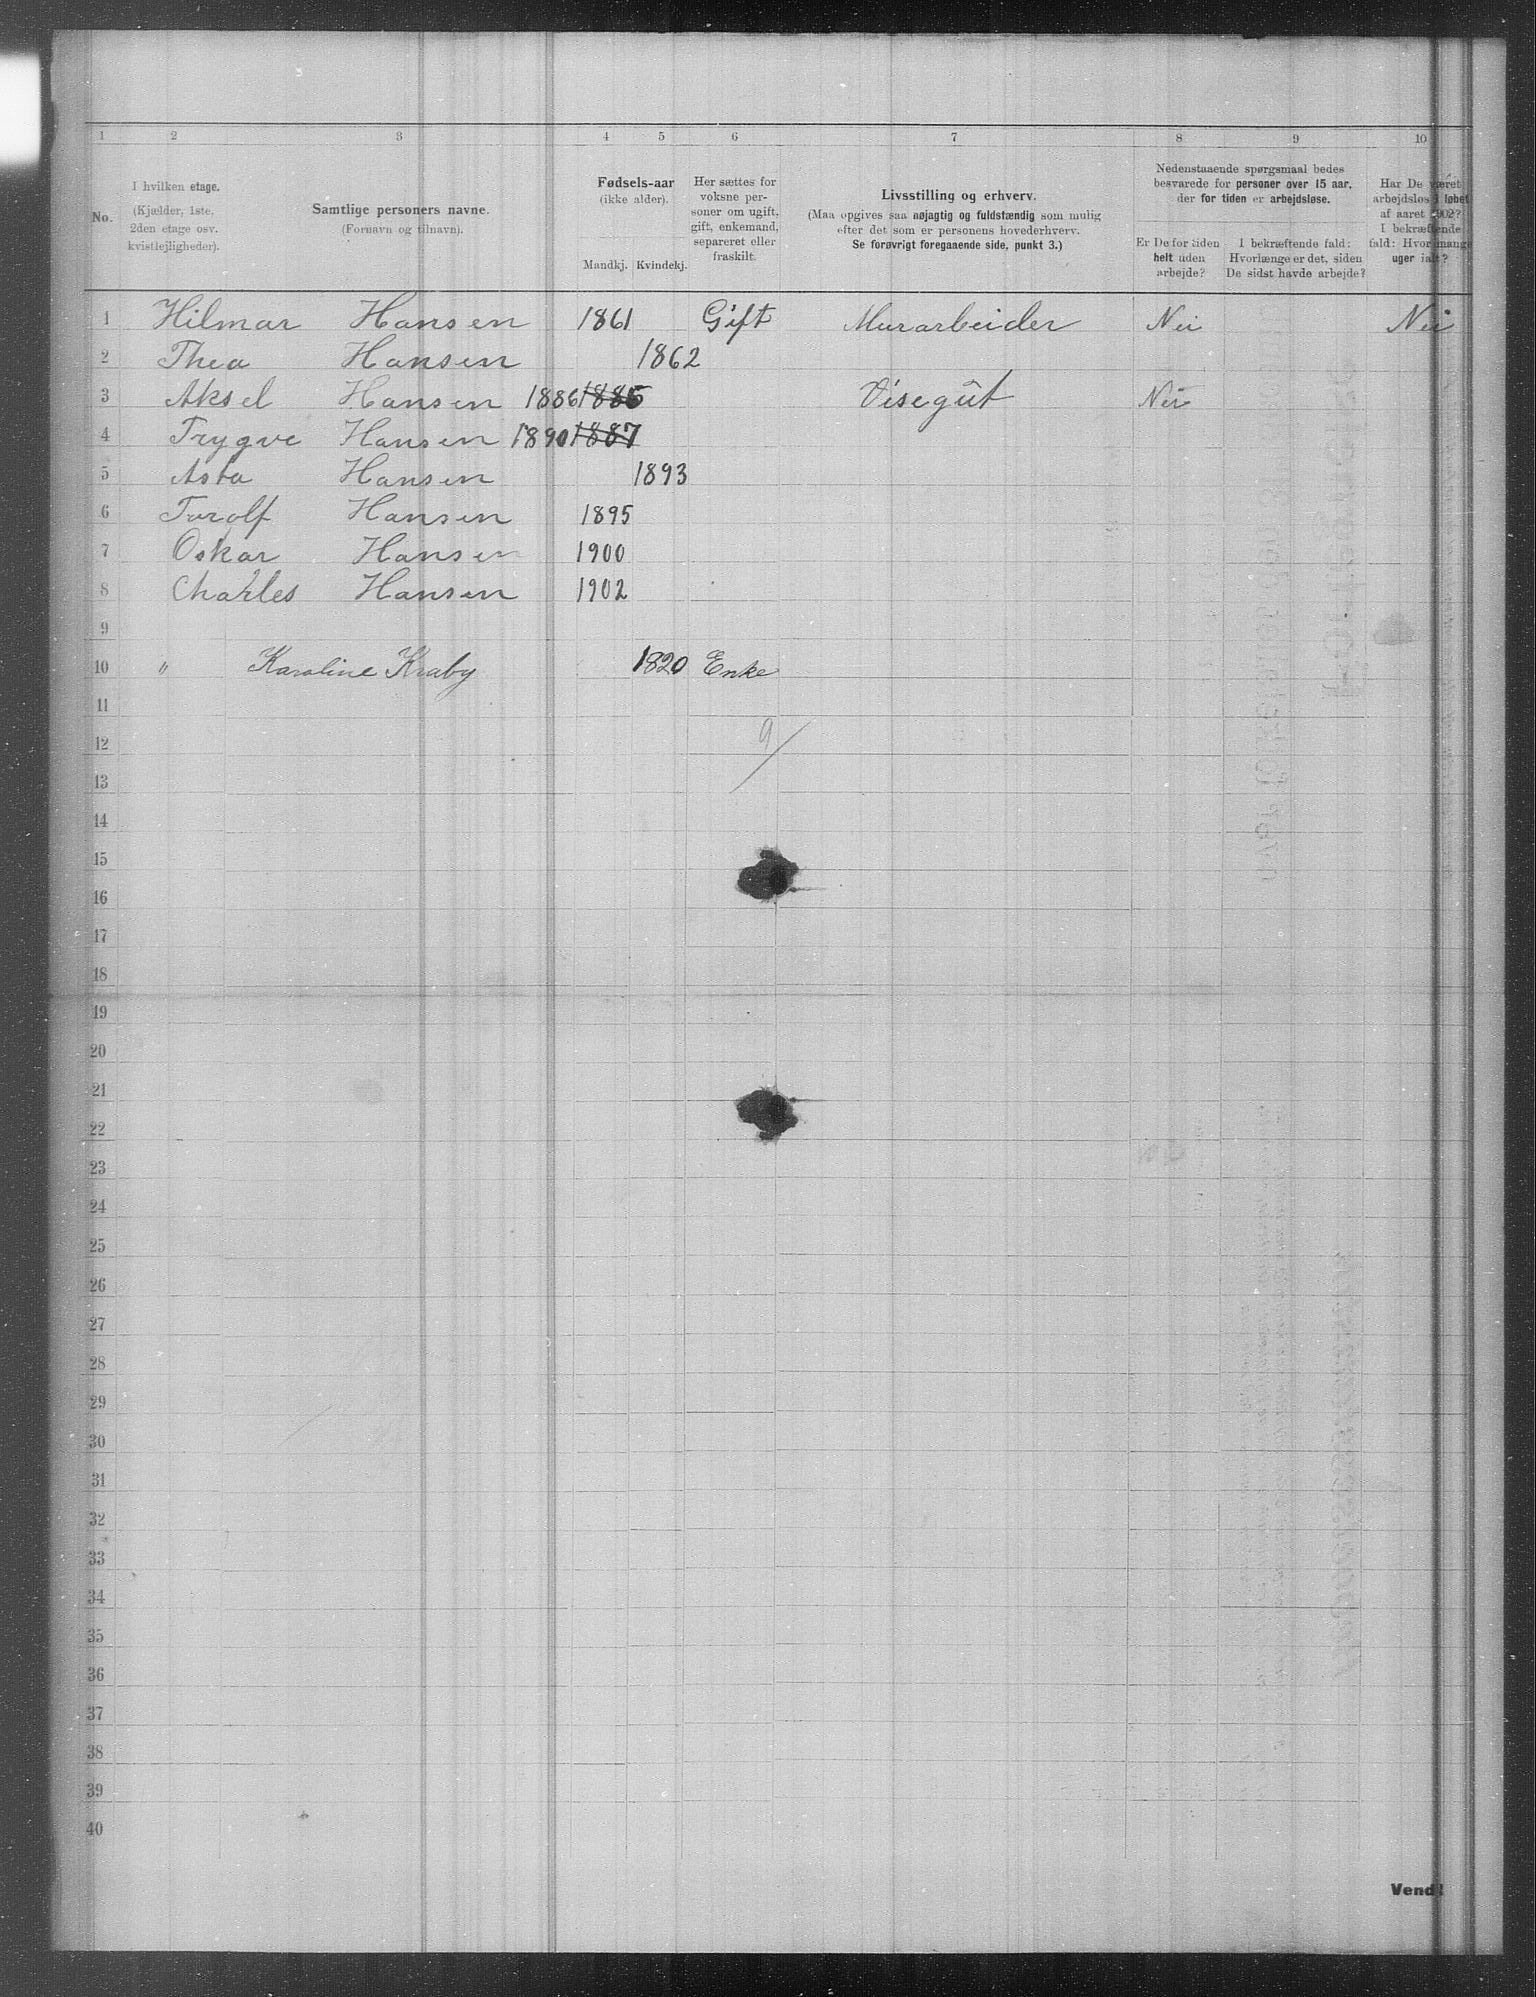 1 2 3 4 5 6 7 8 9 10
No.
I hvilken etage.
(Kjælder, 1ste, 2den etage osv. kvistlejligheder).
Samtlige personers navne.
(Fornavn og tilnavn).
Fødsels-aar
(ikke alder).
Mandkj. Kvindekj.
Her sættes for voksne personer om ugift, gift, enkemand, separeret eller fraskilt.
Livsstilling og erhverv.
(Maa opgives saa nøjagtig og fuldstændig som mulig
efter det som er personens hovederhverv.
Se forøvrigt foregaaende side, punkt 3.)
Nedenstaaende spørgsmaal bedes
besvarede for personer over 15 aar,
der for tiden er arbejdsløse.
Er De for tiden
helt uden
arbejde?
I bekræftende fald:
Hvorlænge er det, siden
De sidst havde arbejde?
Har De været
arbejdsløs i løbet
af aaret 1902?
I bekræftende
fald: Hvor mange
uger ialt?
1 Hilmar Hansen 1861 Gift Murarbeider Nei Nei
2 Thea Hansen 1862
3 Aksel Hansen 1886 1885 Visegut Nei
4 Trygve Hansen 1890 1887
5 Asta Hansen 1893
6 Torolf Hansen 1895
7 Oskar Hansen 1900
8 Charles Hansen 1902
9
10 " Karoline Kraby 1820 Enke
11
12 9/
13
14
15
16
17
18
19
20
21
22
23
24
25
26
27
28
29
30
31
32
33
34
35
36
37
38
39
40
Vend!